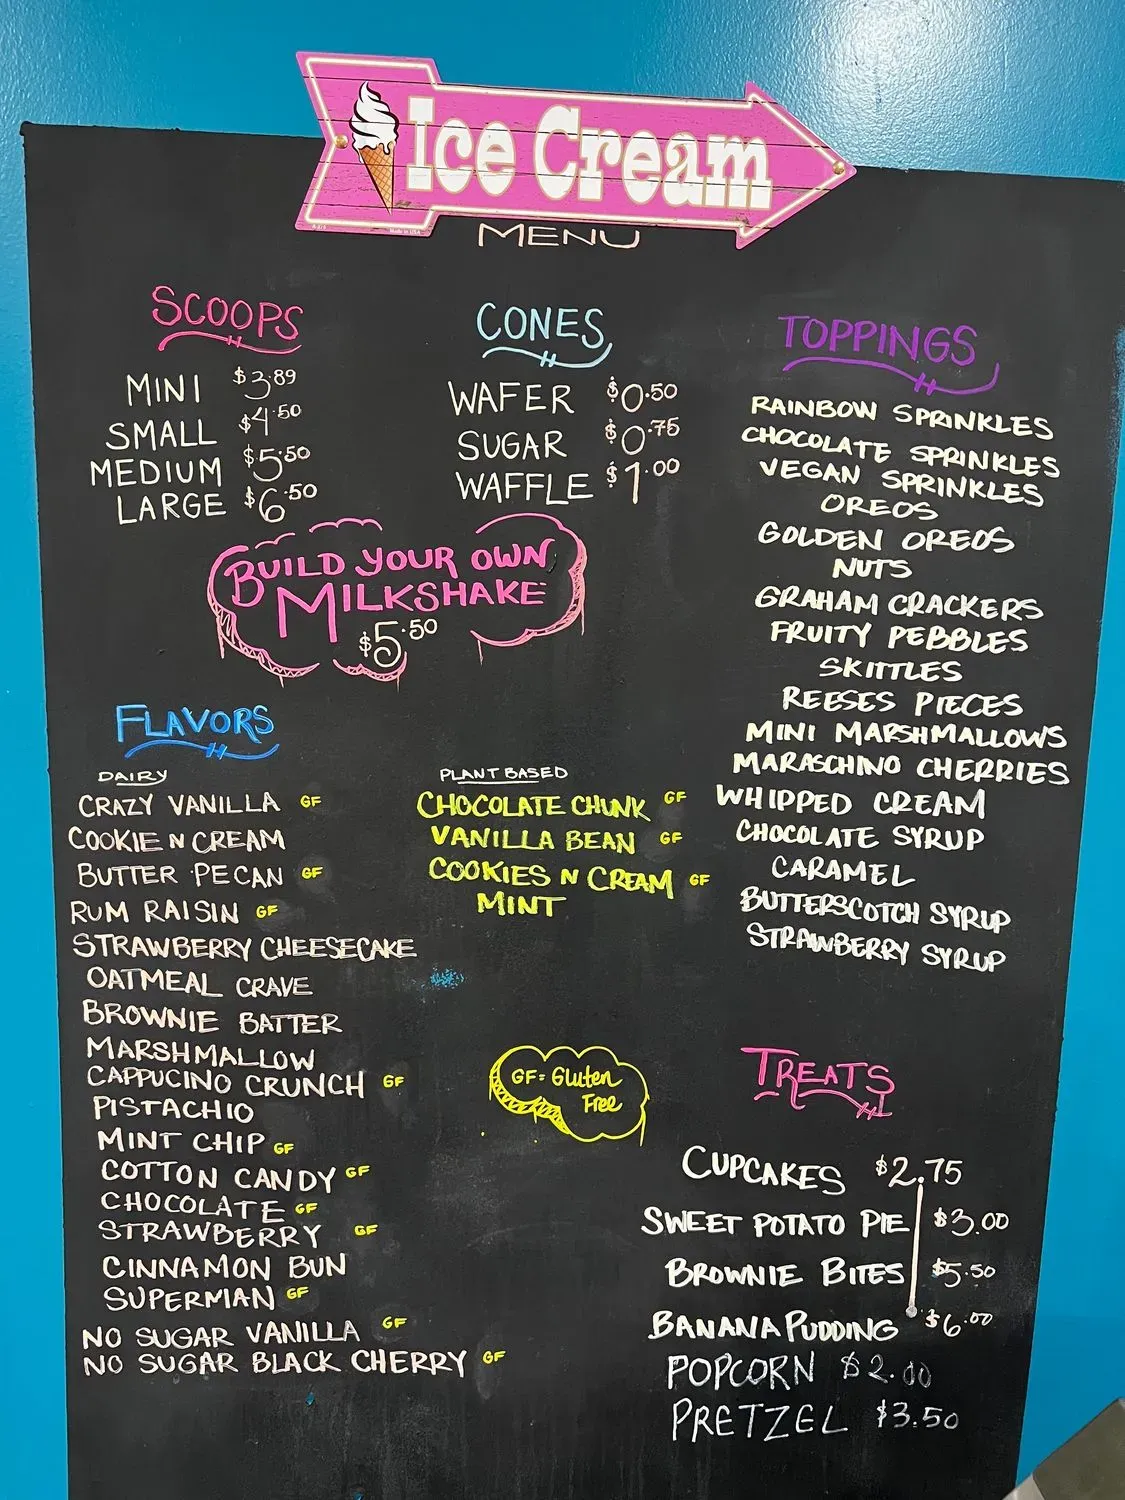 Ice Cream
MENU
SCOOPS
MINI $3.89
SMALL $4.50
MEDIUM $5.50
LARGE $6.50
CONES
WAFER $0.50
SUGAR $0.75
WAFFLE $1.00
BUILD YOUR OWN
MILKSHAKE
$5.50
TOPPINGS
RAINBOW SPRINKLES
CHOCOLATE SPRINKLES
VEGAN SPRINKLES
OREOS
GOLDEN OREOS
NUTS
GRAHAM CRACKERS
FRUITY PEBBLES
SKITTLES
REESES PIECES
MINI MARSHMALLOWS
MARASCHINO CHERRIES
WHIPPED CREAM
CHOCOLATE SYRUP
CARAMEL
BUTTERSCOTCH SYRUP
STRAWBERRY SYRUP
FLAVORS
DAIRY
CRAZY VANILLA GF
COOKIE N CREAM
BUTTER PECAN GF
RUM RAISIN GF
STRAWBERRY CHEESECAKE
OATMEAL CRAVE
BROWNIE BATTER
MARSHMALLOW
CAPPUCINO CRUNCH GF
PISTACHIO
MINT CHIP GF
COTTON CANDY GF
CHOCOLATE GF
STRAWBERRY GF
CINNAMON BUN
SUPERMAN GF
NO SUGAR VANILLA GF
NO SUGAR BLACK CHERRY GF
PLANT BASED
CHOCOLATE CHUNK GF
VANILLA BEAN GF
COOKIES N CREAM GF
MINT
GF = Gluten
Free
TREATS
CUPCAKES $2.75
SWEET POTATO PIE $3.00
BROWNIE BITES $5.50
BANANA PUDDING $6.00
POPCORN $2.00
PRETZEL $3.50